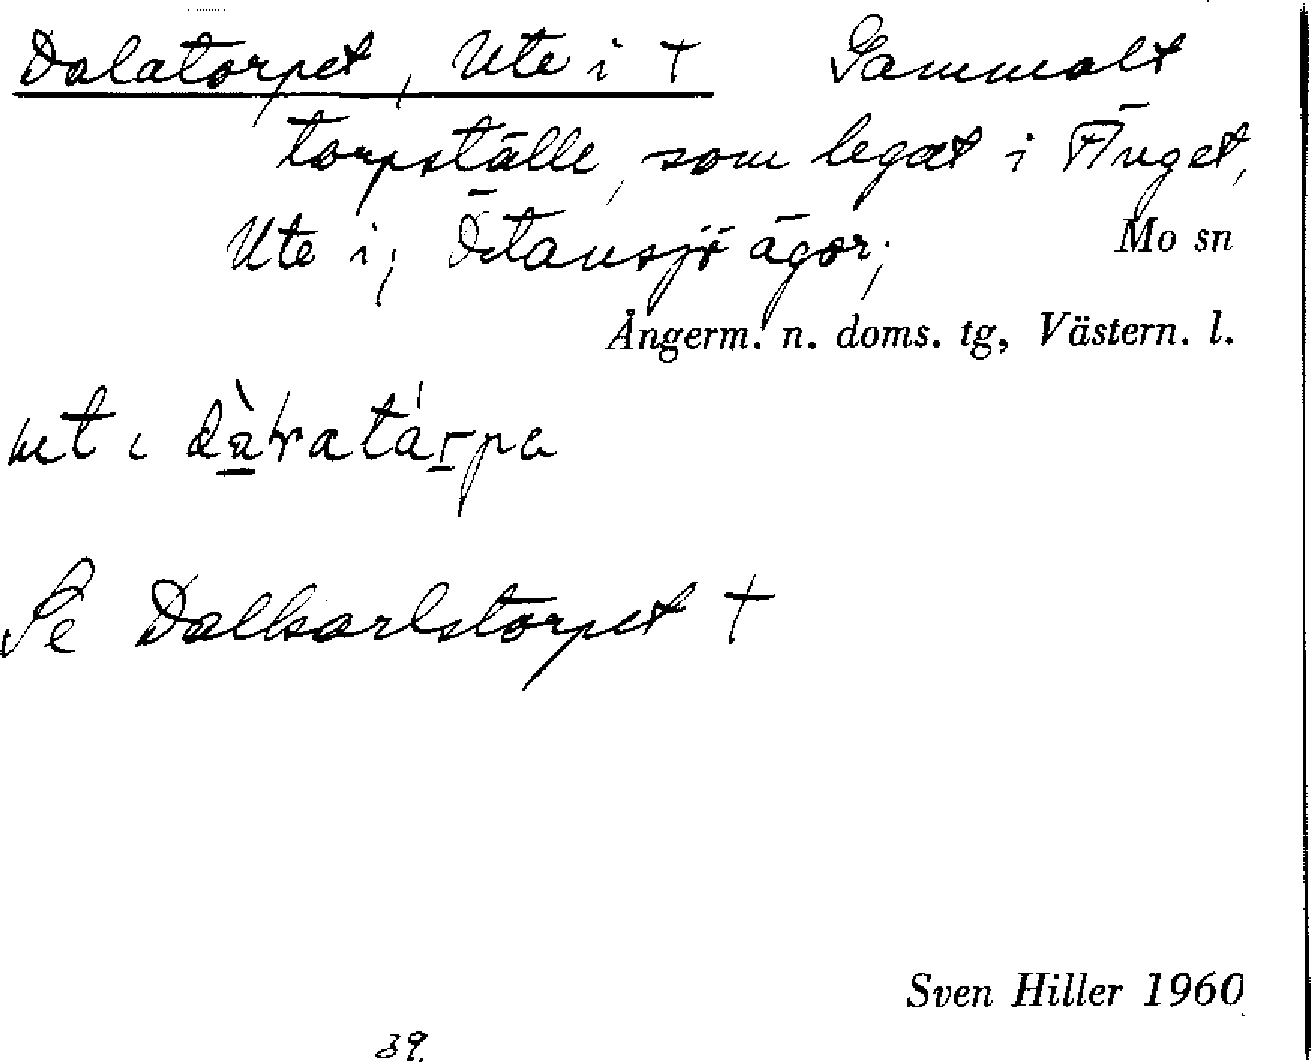 Dalatorpet, Ute i † Gammalt
torpställe, som legat i Änget,
Ute i; Östansjö ägor;
Mo sn
Ångerm. n. doms. tg, Västern. l.
Se Dalkarlstorpet †
Sven Hiller 1960
39.